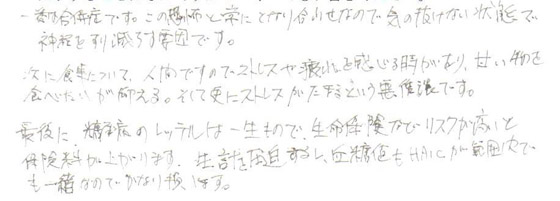 一番合併症です。この恐怖と常にとなり合わせなので気の抜けない状態で
神経をすり減らす毎日です。
次に食事について、人間ですのでストレスや疲れを感じる時があり、甘い物を
食べたいが抑える。そして更にストレスがたまるという悪循環です。
最後に、糖尿病のレッテルは一生もので、生命保険などリスクが高いと
保険料が上がります。生計を圧迫するし、血糖値もHA1Cが範囲内で
も一緒なのでかなり損です。